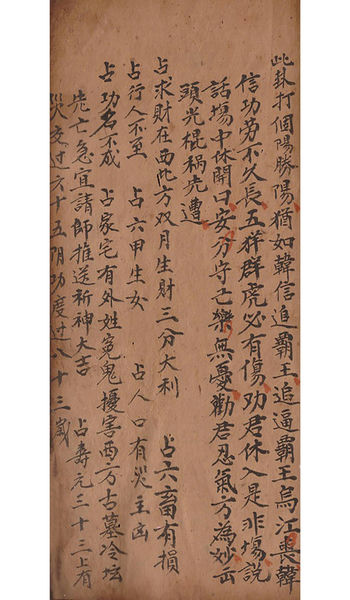 此卦打個陽勝陽猶如韓信追霸王追逼霸王烏江喪韓
信功劳不久長五羊群虎必有傷劝君休入是非塲說
話塲中休開口安分守己樂無憂勸君忍氣方為妙
頭光棍禍先遭
占求財在西北方双月生財三分大利 占六畜有損
占行人不至 占六甲生女 占人口有災主凶
占功名不成 占家宅有外姓冤鬼擾害西方古墓冷坛
先亡急宜請師推送祈神大吉 占壽元三十三上有
災交过六十五阴功度过八十三歲